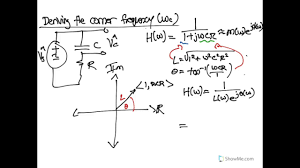 Deriving the corner frequency (ωc)
H(ω) = 1 / (1+jωCR) ≈ m(ω)e^jθ(ω)
C
Vc
R
L = √1² + ω²c²R²
θ = tan⁻¹(ωCR / 1)
Im
(1, ωCR)
L
θ
R
H(ω) = 1 / L(ω)e^jθ(ω)
=
ShowMe.com